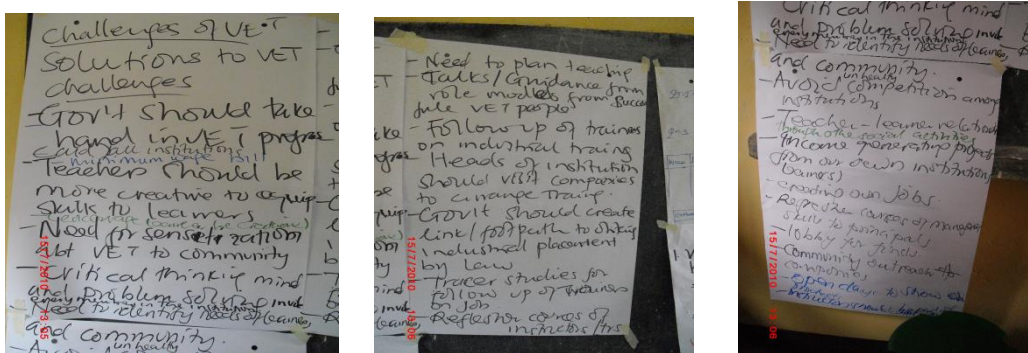 Challenges of VET
Solutions to VET
challenges
- Gov't should take
hand in VET progrs
and all institutions
minimum wage bill
- Teachers should be
more creative to equip
skills to learners
- Need for sensitization
abt VET to community
- Critical thinking mind
and problem solving
Need to identify needs of learners,
and community.
un healthy
15/7/2010 13:05
- Need to plan teaching
- Talks/Guidance from
role models from succe
ful VET people
- Follow up of trainees
on industrial training
- Heads of institution
should visit companies
to arrange Traing.
- Gov't should create
link/footpath to
industrial placement
by law
- Tracer studies for
follow up of trainees
for job
- Refresher courses of
instructors/trs
15/7/2010 13:06
Critical thinking mind
and problem solving
Need to identify needs of learners,
and community.
un healthy
- Avoid competition among
institutions
- Teacher-learner relation
through other social activities
- Income generating projects
from our own institutions
(trainers)
- creating own jobs.
- Refresher courses of
skills to principals
- lobby for funds
- Community outreach to
companies
- open day to show
15/7/2010 13:06